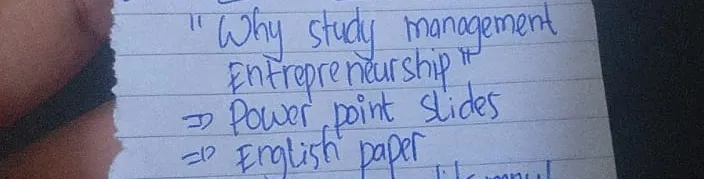 "Why study management
Entrepreneurship"
⇒ Power point slides
⇒ English paper